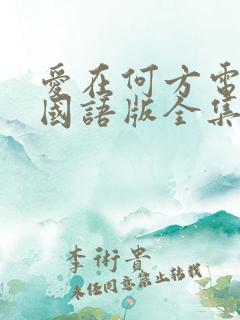 愛在何方電
國語版全集
李術貴
未經同意禁止轉載